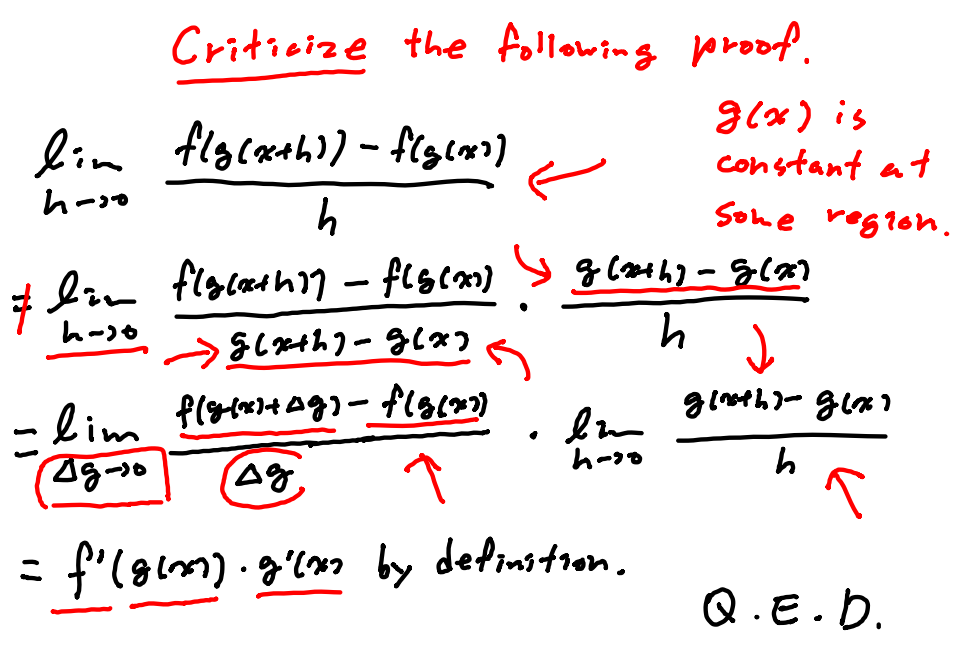 Criticize the following proof.
g(x) is
constant at
some region.
lim h→0 f(g(x+h)) - f(g(x)) / h
= lim h→0 f(g(x+h)) - f(g(x)) / g(x+h) - g(x) · g(x+h) - g(x) / h
= lim Δg→0 f(g(x)+Δg) - f(g(x)) / Δg · lim h→0 g(x+h) - g(x) / h
= f'(g(x)) · g'(x) by definition.
Q.E.D.